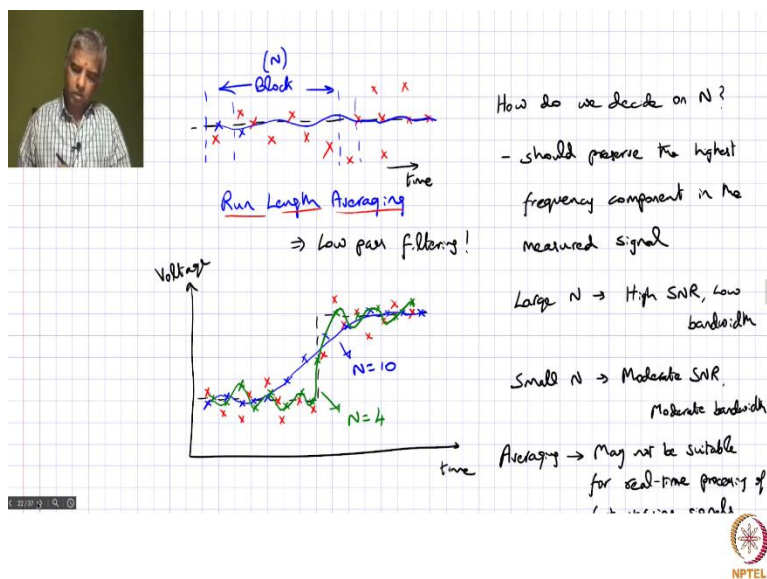 (N)
Block
time
Run Length Averaging
⇒ Low pass filtering!
Voltage
N=10
N=4
time
How do we decide on N?
- should preserve the highest
frequency component in the
measured signal
Large N → High SNR, Low
bandwidth
Small N → Moderate SNR,
Moderate bandwidth
Averaging → May not be suitable
for real-time processing of
signals
22/37
NPTEL